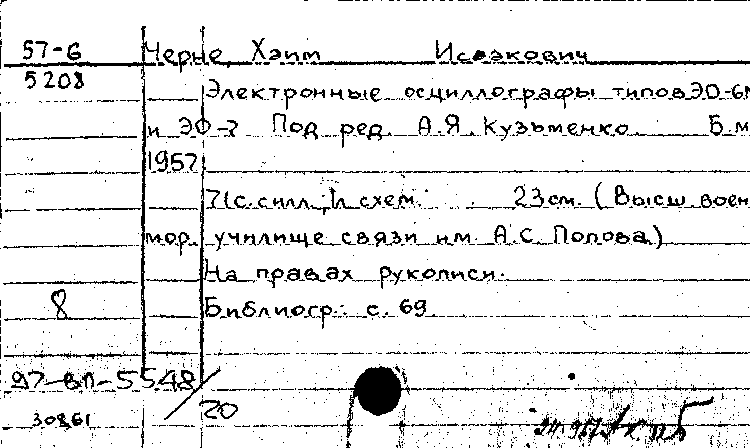 57-6 Черне, Хаим Исаакович
5208 Электронные осциллографы типов ЭО-6м
и ЭО-7 Под ред. А.Я. Кузьменко. Б.м
1957
71с. с илл.; 1л схем. 23см. (Высш воен
мор. училище связи им. А.С. Попова)
На правах рукописи.
8 Библиогр.: с. 69.
97-ВП-5548/
20
30861